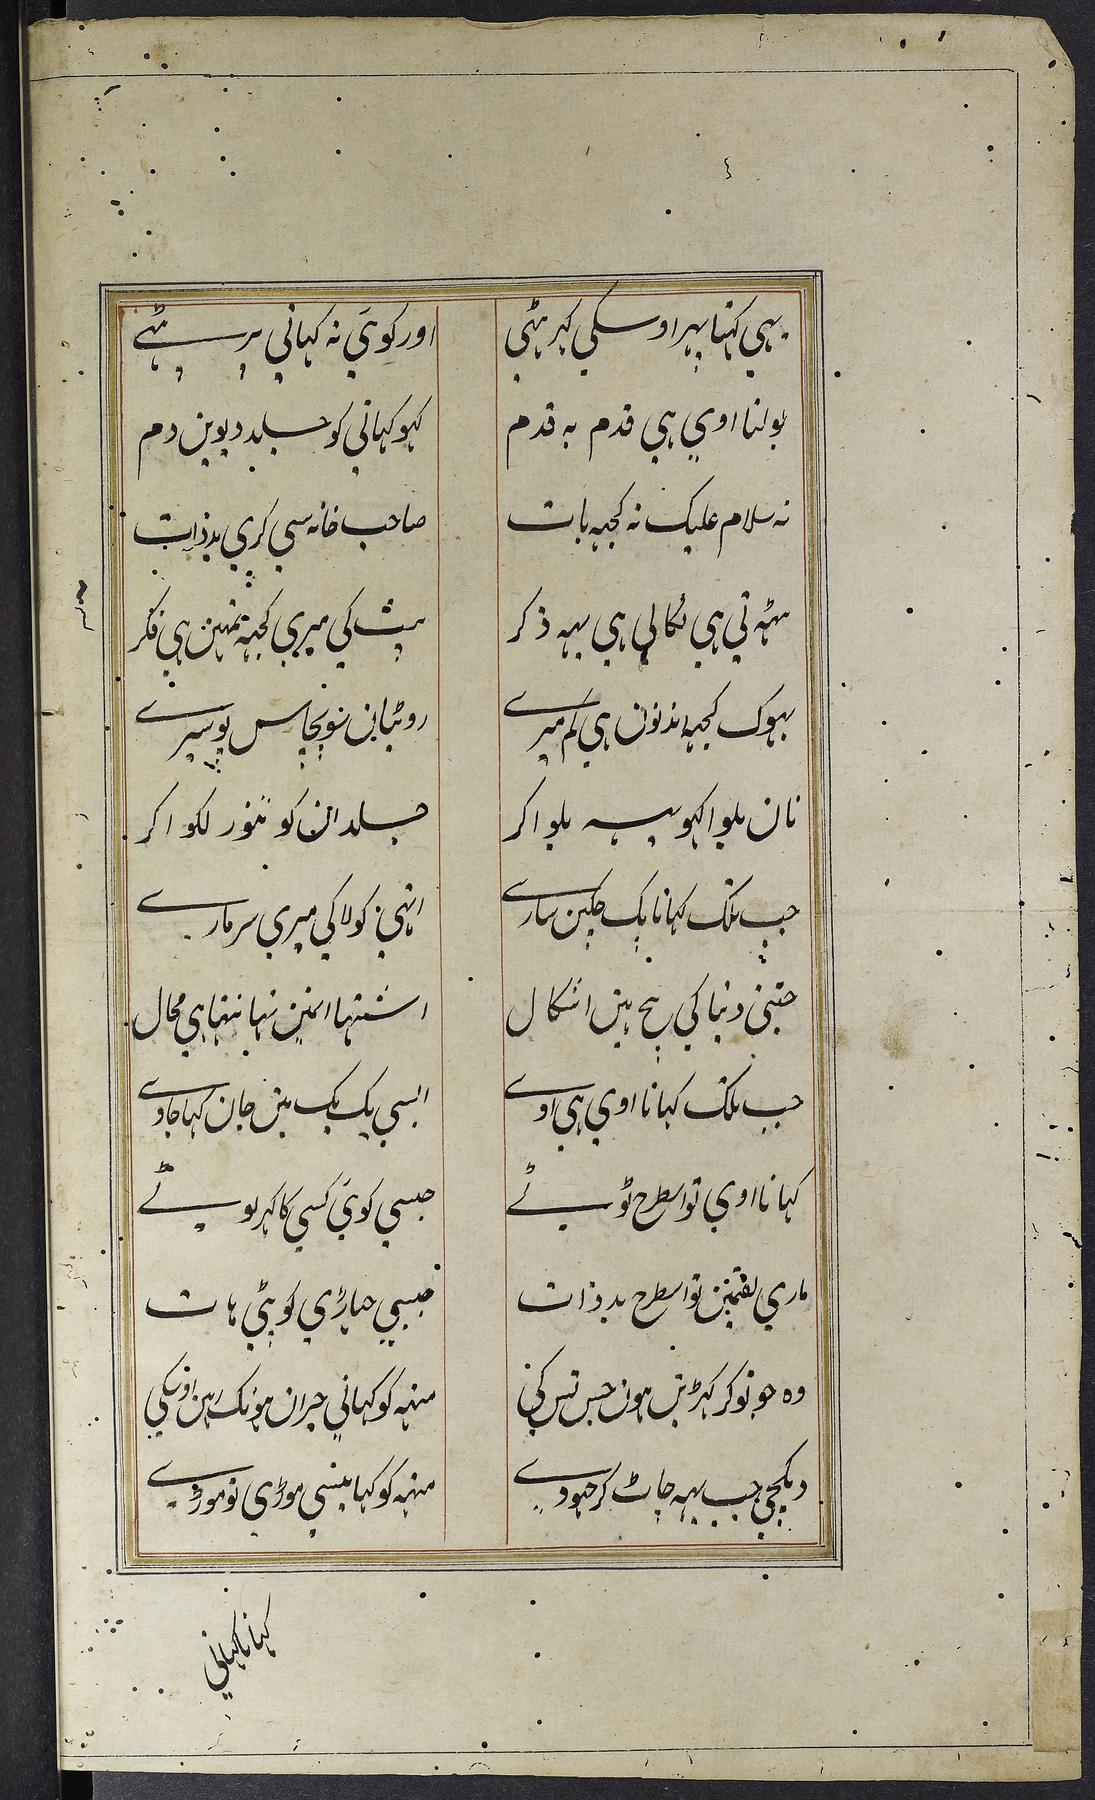 یہی کہتا پہر اوسکی کہر ہٹی	اور کوئی نہ کہانی پر ہٹے
بولنا اوی ہی قدم بہ قدم	کہو کہانی کو جلد دیوین دم
نہ سلام علیک نہ کچہ بات	صاحب خانہ سی کری بدذات
منہہ تی ہی نکالی ہی یہہ ذکر	پیٹ کی میری کچہہ تمہین ہی فکر
بہوک کچہہ اندنون ہی کم میرے	روٹیان سو پچاس پو سیرے
نان پلوا کہو یہہ پلوا کر	جلد ان کو تنور لکوا کر
جب تلک کہانا پک چکین سارے	انہی کو لا کی میری سر مارے
جتنی دنیا کی بیچ ہین اشکال	اشتہا مین نہا نتہا ہی محال
جب تلک کہانا اوی ہی اوے	ایسی بک بک مین جان کہا جاوے
کہانا اوی تو اسطرح ٹوٹے	جیسی کوئی کسی کا کہر لوٹے
ماری لقمین تو اسطرح بدذات	جیسی جہاڑی کوئی ہات
وہ جو نوکر کہڑین ہون جس تس کی	منہہ کو کہانی حیران ہو تک رہین اوسکی
دیکہی جب یہہ چاٹ کر چہودے	منہہ کو کہا مینسی موڑی تو موڑے
کہانا کہانی